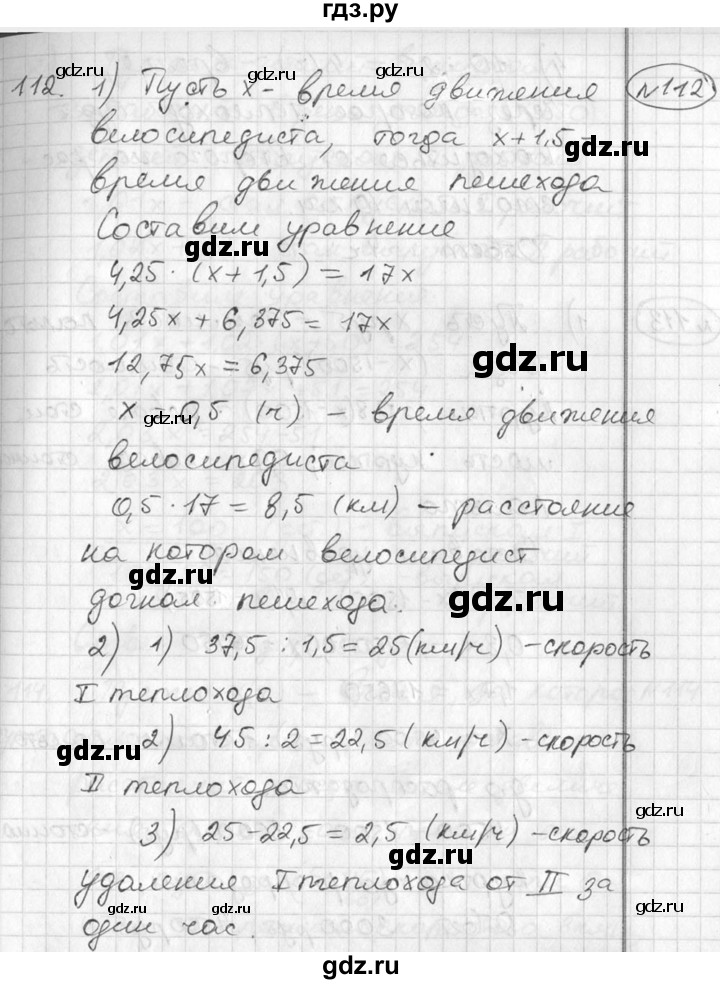 гдз.ру
112. 1) Пусть x - время движения №112
велосипедиста, тогда x+1,5 -
время движения пешехода
Составим уравнение
gdz.ru
4,25 · (x + 1,5) = 17x
4,25x + 6,375 = 17x
gdz.ru
12,75x = 6,375
gdz.ru
x = 0,5 (ч) - время движения
велосипедиста
0,5 · 17 = 8,5 (км) - расстояние
на котором велосипедист
gdz.ru
догнал пешехода.
gdz.ru
2) 1) 37,5 : 1,5 = 25 (км/ч) - скорость
I теплохода
2) 45 : 2 = 22,5 (км/ч) - скорость
gdz.ru
II теплохода
gdz.ru
3) 25 - 22,5 = 2,5 (км/ч) - скорость
gdz.ru
удаления I теплохода от II за
gdz.ru gdz.ru gdz.ru
один час.
gdz.ru